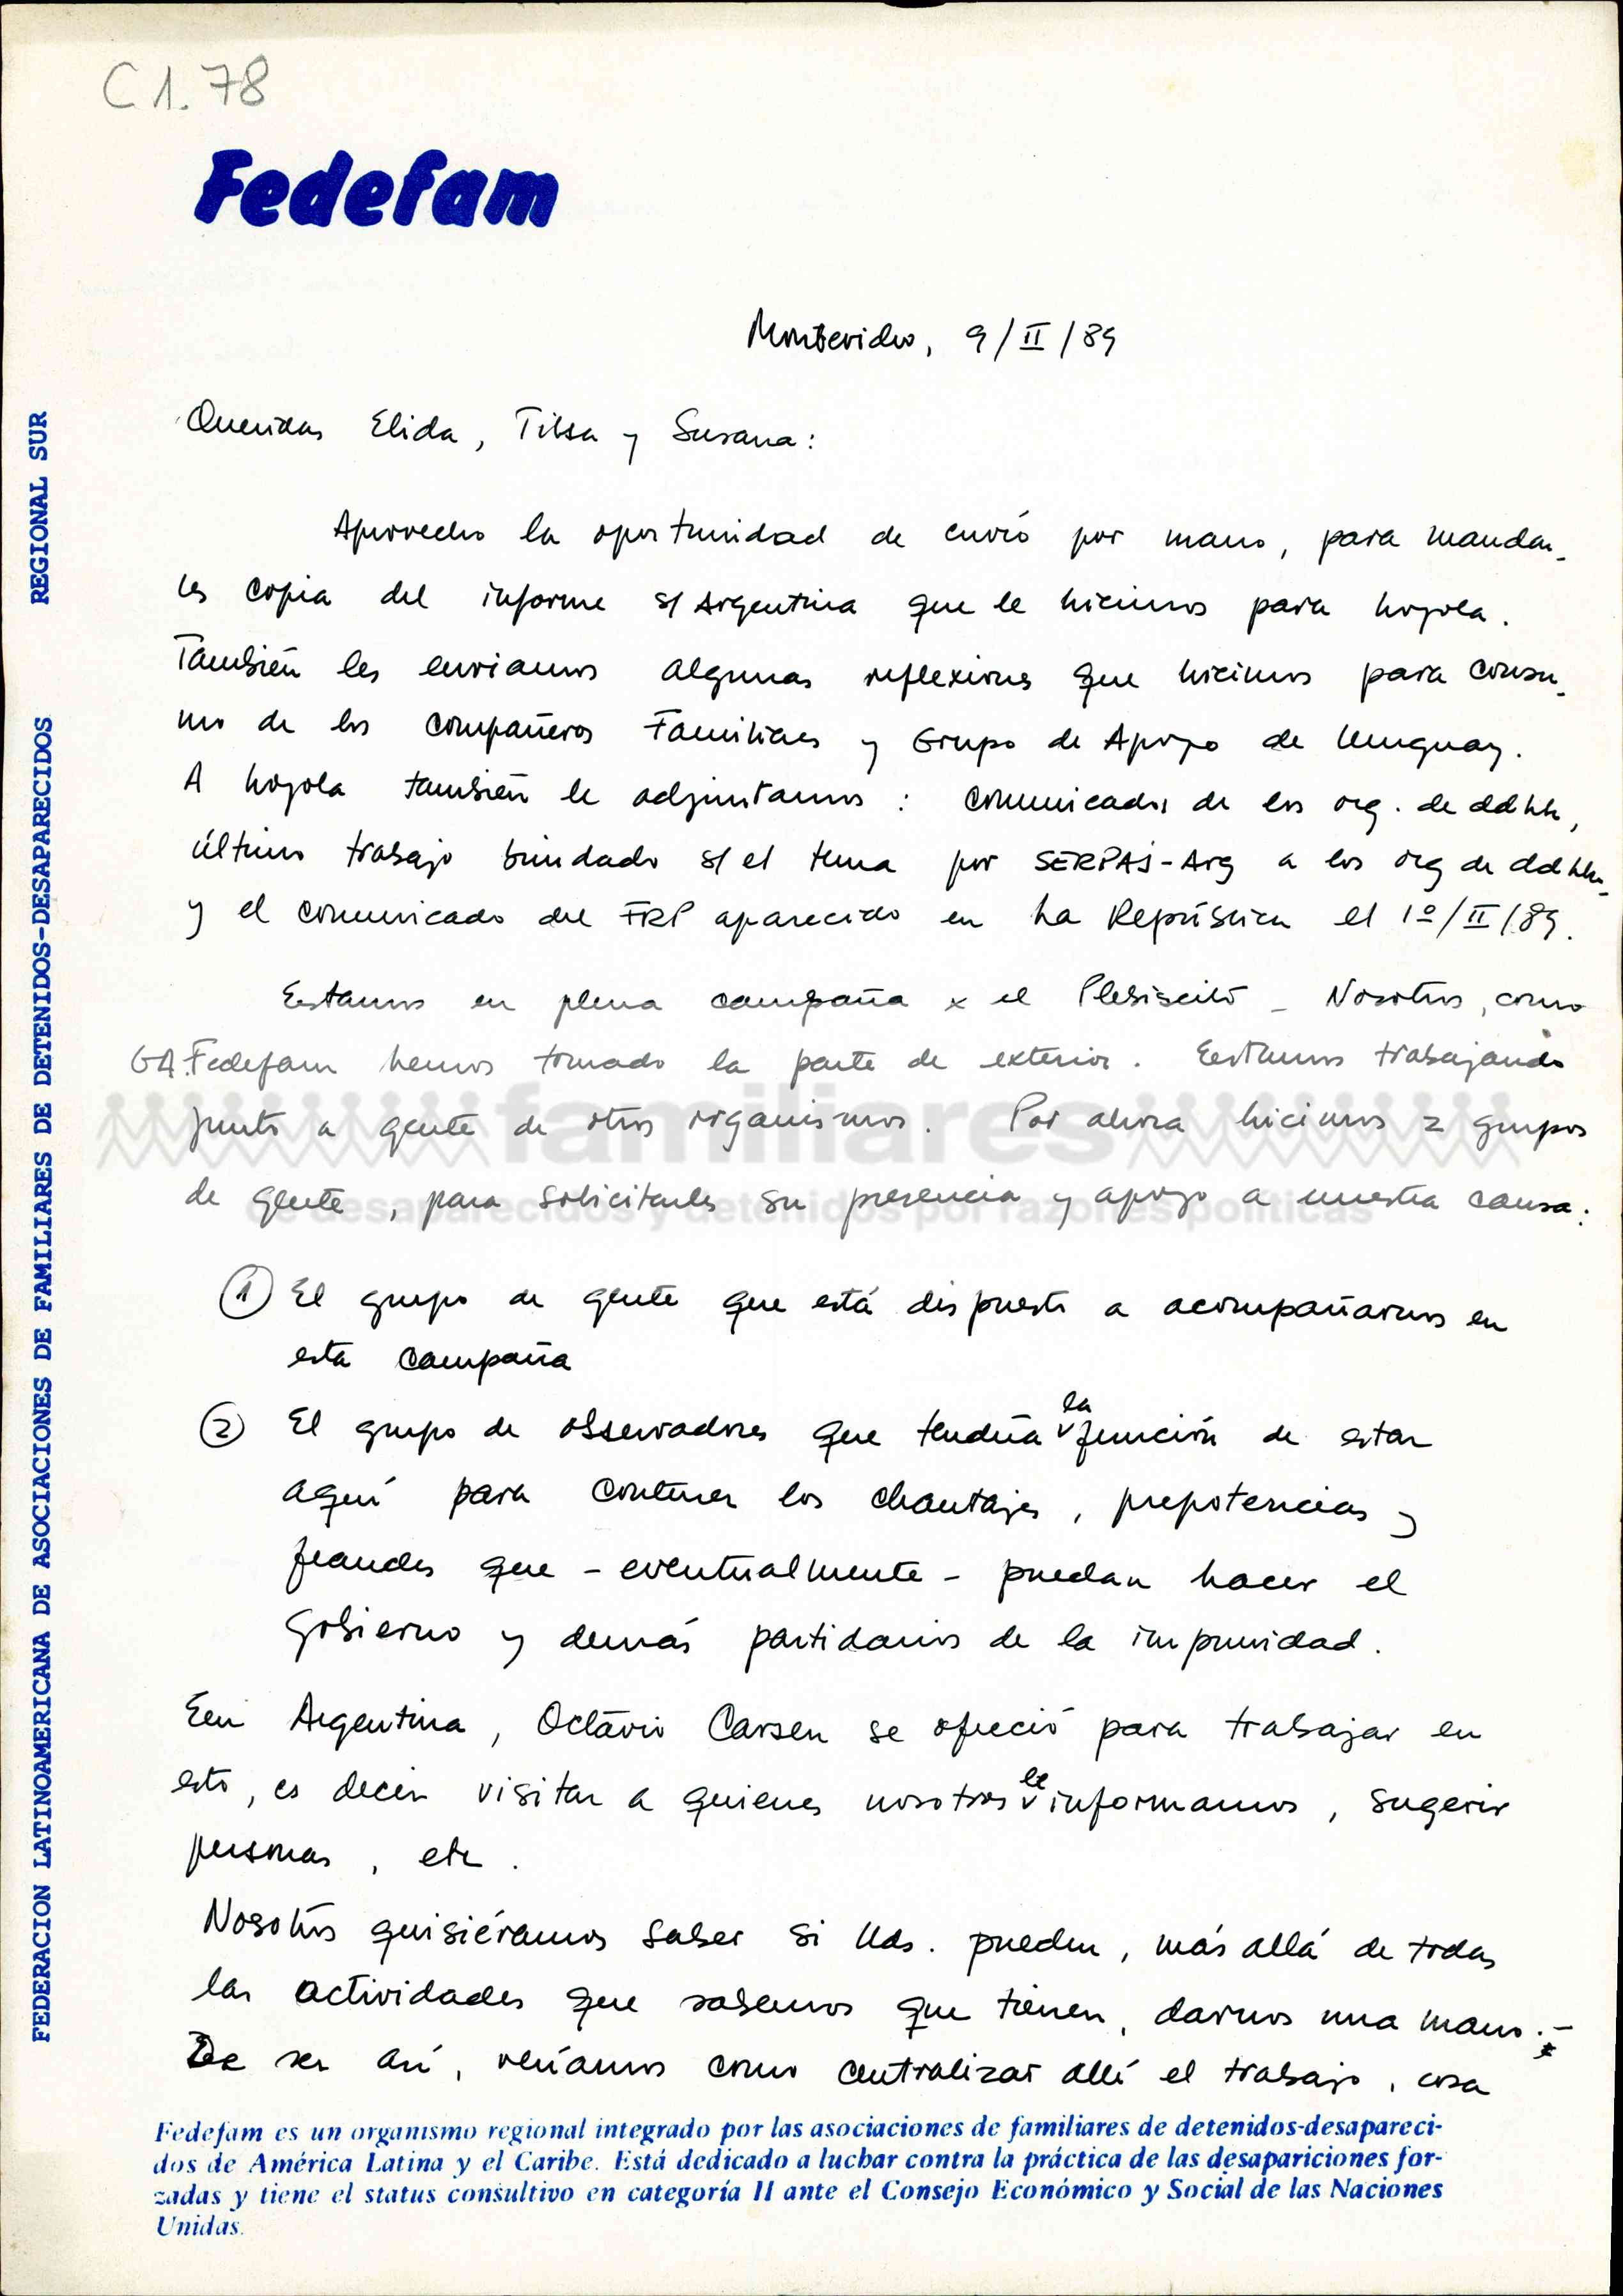 C 1.78
Fedefam
Montevideo, 9/II/89
Queridas Elida, Tilsa y Susana:
Aprovecho la oportunidad de envió por mano, para mandar_
les copia del informe s/ Argentina que le hicimos para Loyola.
También les enviamos algunas reflexiones que hicimos para consu_
mo de los compañeros Familiares y Grupo de Apoyo de Uruguay.
A Loyola también le adjuntamos : comunicados de los org. de ddhh,
último trabajo brindado s/ el tema por SERPAJ-Arg a los org de ddhh_
y el comunicado del FRP aparecido en La República el 1º/II/89.
Estamos en plena campaña x el Plebiscito _ Nosotros, como
GA.Fedefam hemos tomado la parte de exterior. Estamos trabajando
junto a gente de otros organismos. Por ahora hicimos 2 grupos
familiares
de gente, para solicitarles su presencia y apoyo a nuestra causa:
de desaparecidos y detenidos por razones políticas
① El grupo de gente que está dispuesto a acompañarnos en
esta campaña
② El grupo de observadores que tendría la función de estar
aquí para contener los chantajes, prepotencias y
fraudes que - eventualmente - puedan hacer el
Gobierno y demás partidarios de la impunidad.
En Argentina, Octavio Carsen se ofreció para trabajar en
esto, es decir visitar a quienes nosotros le informamos, sugerir
personas, etc.
Nosotros quisiéramos saber si Uds. pueden, más allá de todas
las actividades que sabemos que tienen, darnos una mano.-*
De ser así, veríamos como centralizar allí el trabajo, cosa
Fedefam es un organismo regional integrado por las asociaciones de familiares de detenidos-desapareci-
dos de América Latina y el Caribe. Está dedicado a luchar contra la práctica de las desapariciones for-
zadas y tiene el status consultivo en categoría II ante el Consejo Económico y Social de las Naciones
Unidas.
FEDERACION LATINOAMERICANA DE ASOCIACIONES DE FAMILIARES DE DETENIDOS-DESAPARECIDOS REGIONAL SUR